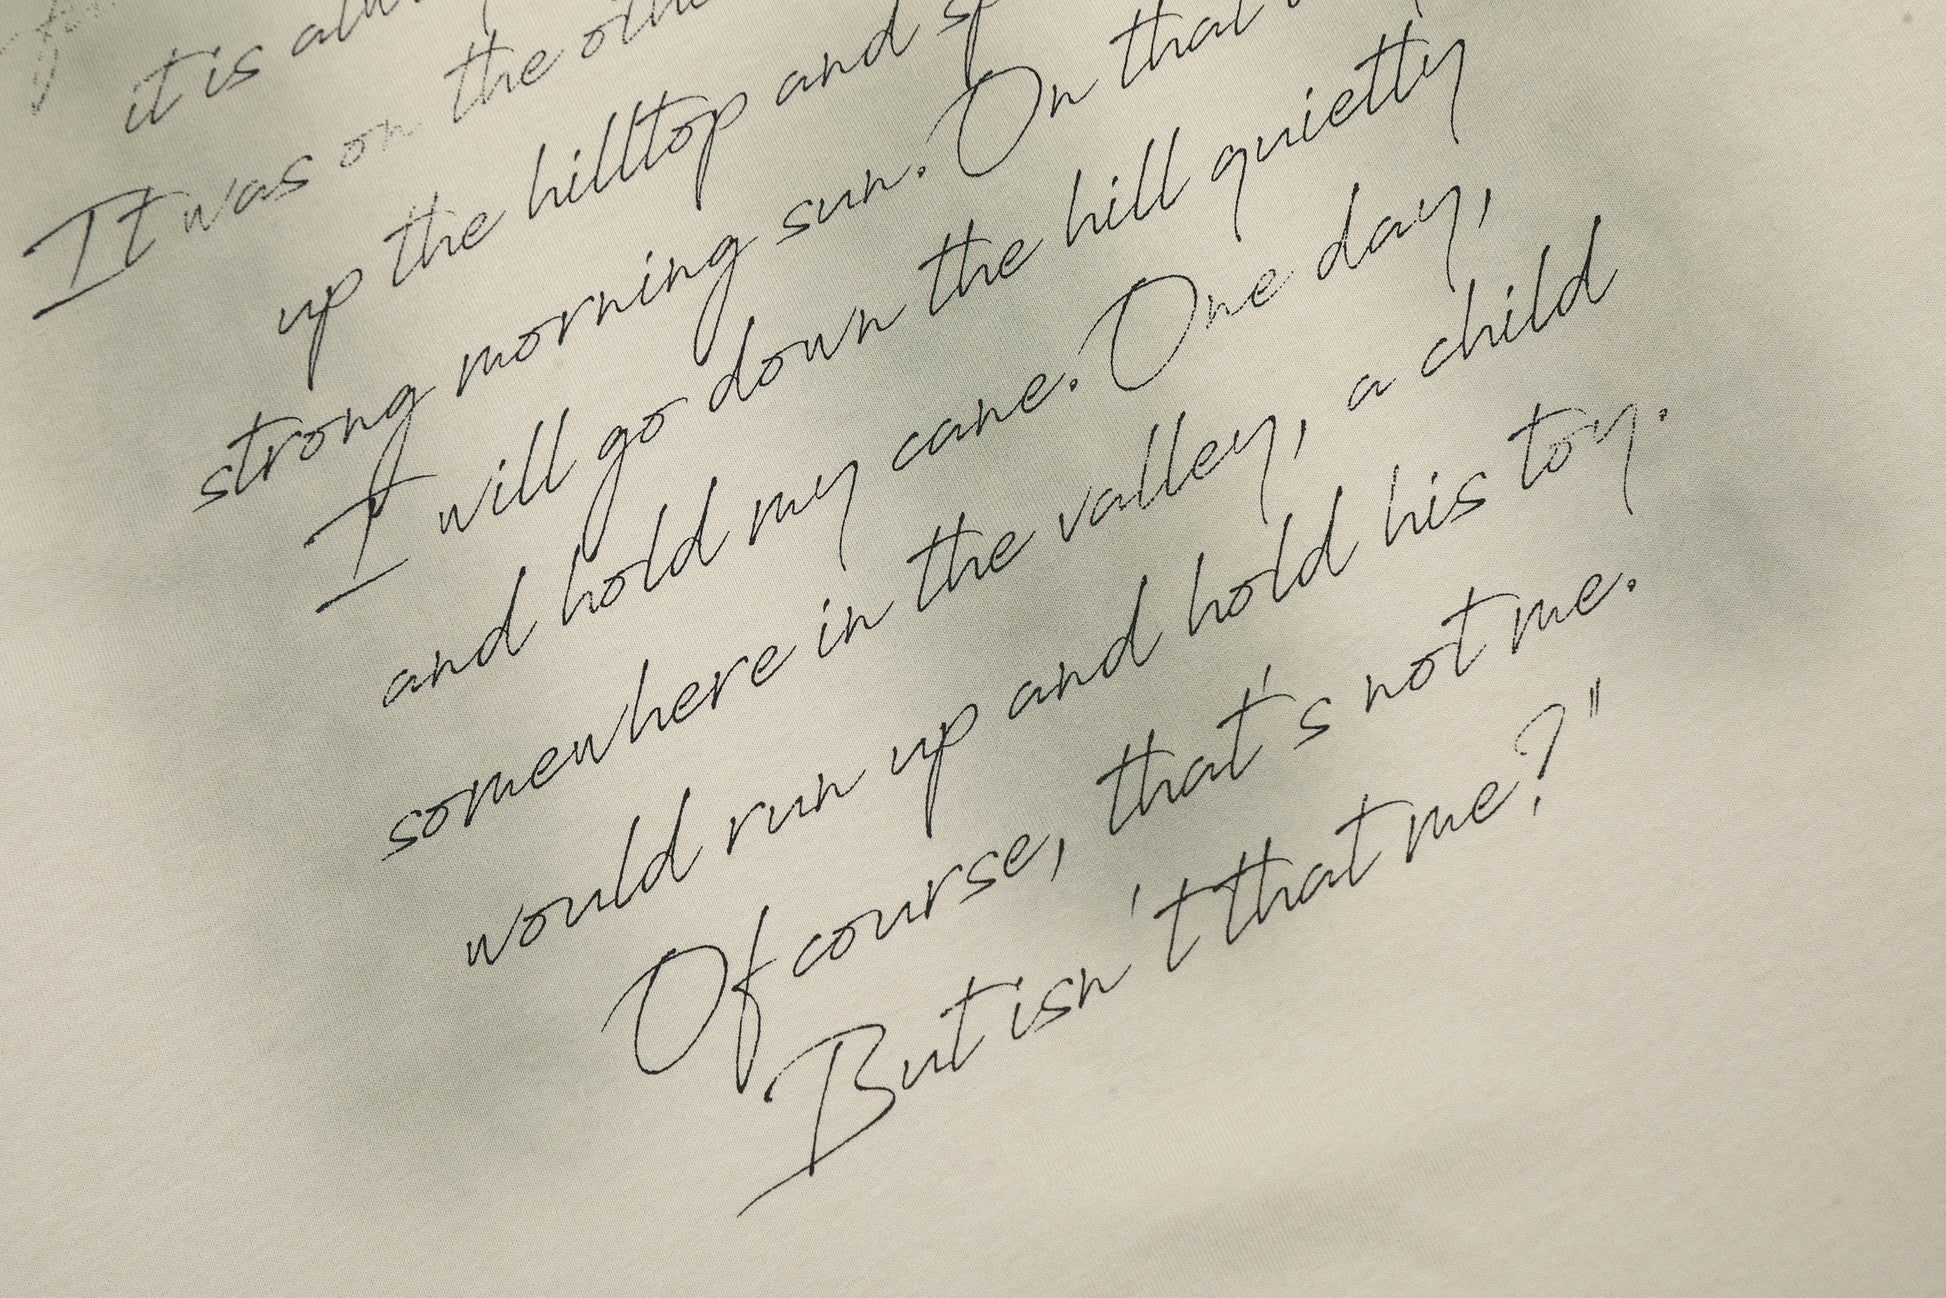 it is
It was on the
up the hilltop and
strong morning sun. On that
I will go down the hill quietty
and hold my cane. One day,
somewhere in the valley, a child
would run up and hold his toy.
Of course, that's not me.
But isn't that me?"